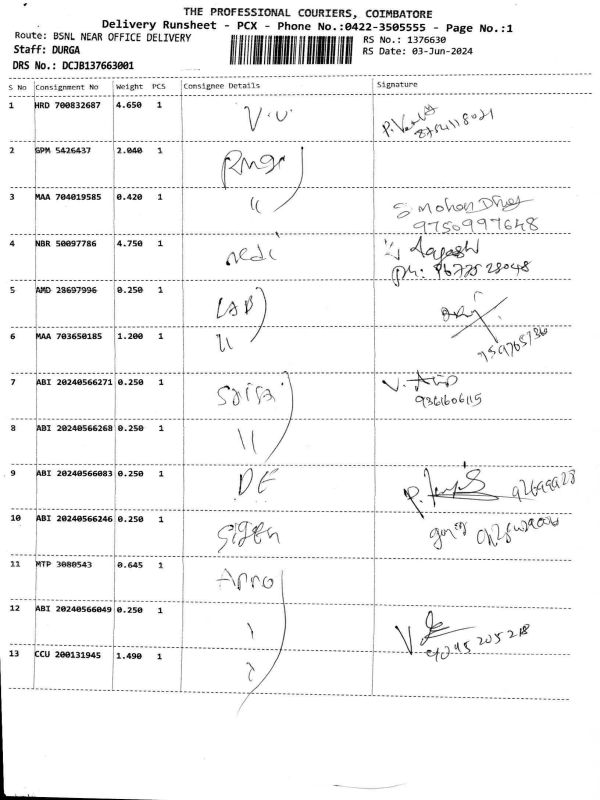 THE PROFESSIONAL COURIERS, COIMBATORE
Delivery Runsheet - PCX - Phone No.:0422-3505555 - Page No.:1
Route: BSNL NEAR OFFICE DELIVERY
RS No.: 1376630
Staff: DURGA
RS Date: 03-Jun-2024
DRS No.: DCJB137663001
S No Consignment No Weight PCS Consignee Details Signature
1 HRD 700832687 4.650 1 V.V
2 GPM 5426437 2.040 1
3 MAA 704019585 0.420 1 " S Mohan
9750997648
4 NBR 50097786 4.750 1 nedi
5 AMD 28697996 0.250 1
6 MAA 703650185 1.200 1 "
7 ABI 20240566271 0.250 1
9361606115
8 ABI 20240566268 0.250 1 "
9 ABI 20240566083 0.250 1 DE
10 ABI 20240566246 0.250 1
11 MTP 3080543 0.645 1
12 ABI 20240566049 0.250 1
13 CCU 200131945 1.490 1